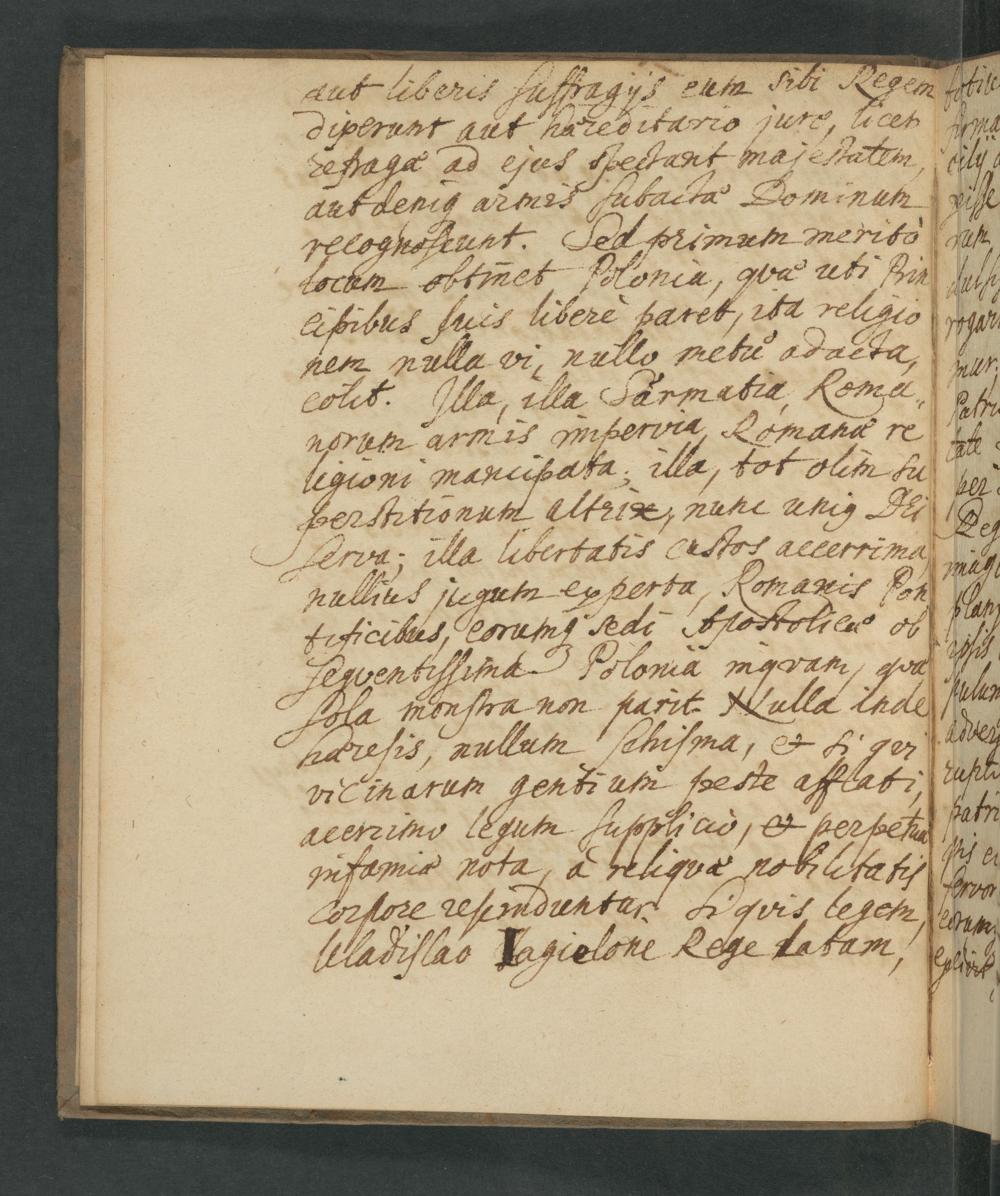 aut liberis suffragijs eum sibi Regem
diperunt aut hæreditario jure, licet
refragæ ad ejus spectant majestatem,
aut deniq armis subactæ Dominum
recognoscunt. Sed primum meritò
locum obtinet Polonia, quæ uti Prin
cipibus suis liberè paret, ita religio
nem nulla vi, nullo metu adacta,
colit. Illa, illa Sarmatia, Roma,
norum armis impervia, Romanæ re
ligioni mancipata; illa, tot olim su
perstitionum altrix, nunc uniq DEi
serva; illa libertatis custos acerrima,
nullius jugum experta, Romanis Pon
tificibus, eorumq sedi Apostolicæ ob
sequentissima Polonia inquam, quæ
sola monstra non parit. Nulla inde
hæresis, nullum schisma, & si qui
vicinarum gentium peste afflati,
acerrimo legum supplicio, & perpetuæ
infamiæ nota, à reliquæ nobilitatis
corpore resinduntur. Si quis legem,
Uladislao Jagielone Rege latam,